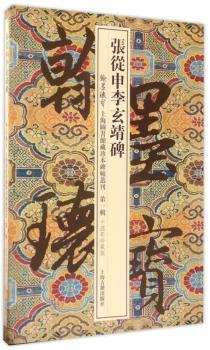 張從申李玄靖碑
翰墨瓌寶 上海圖書館藏珍本碑帖叢刊 第一輯
上海古籍出版社
翰墨
瓌寶